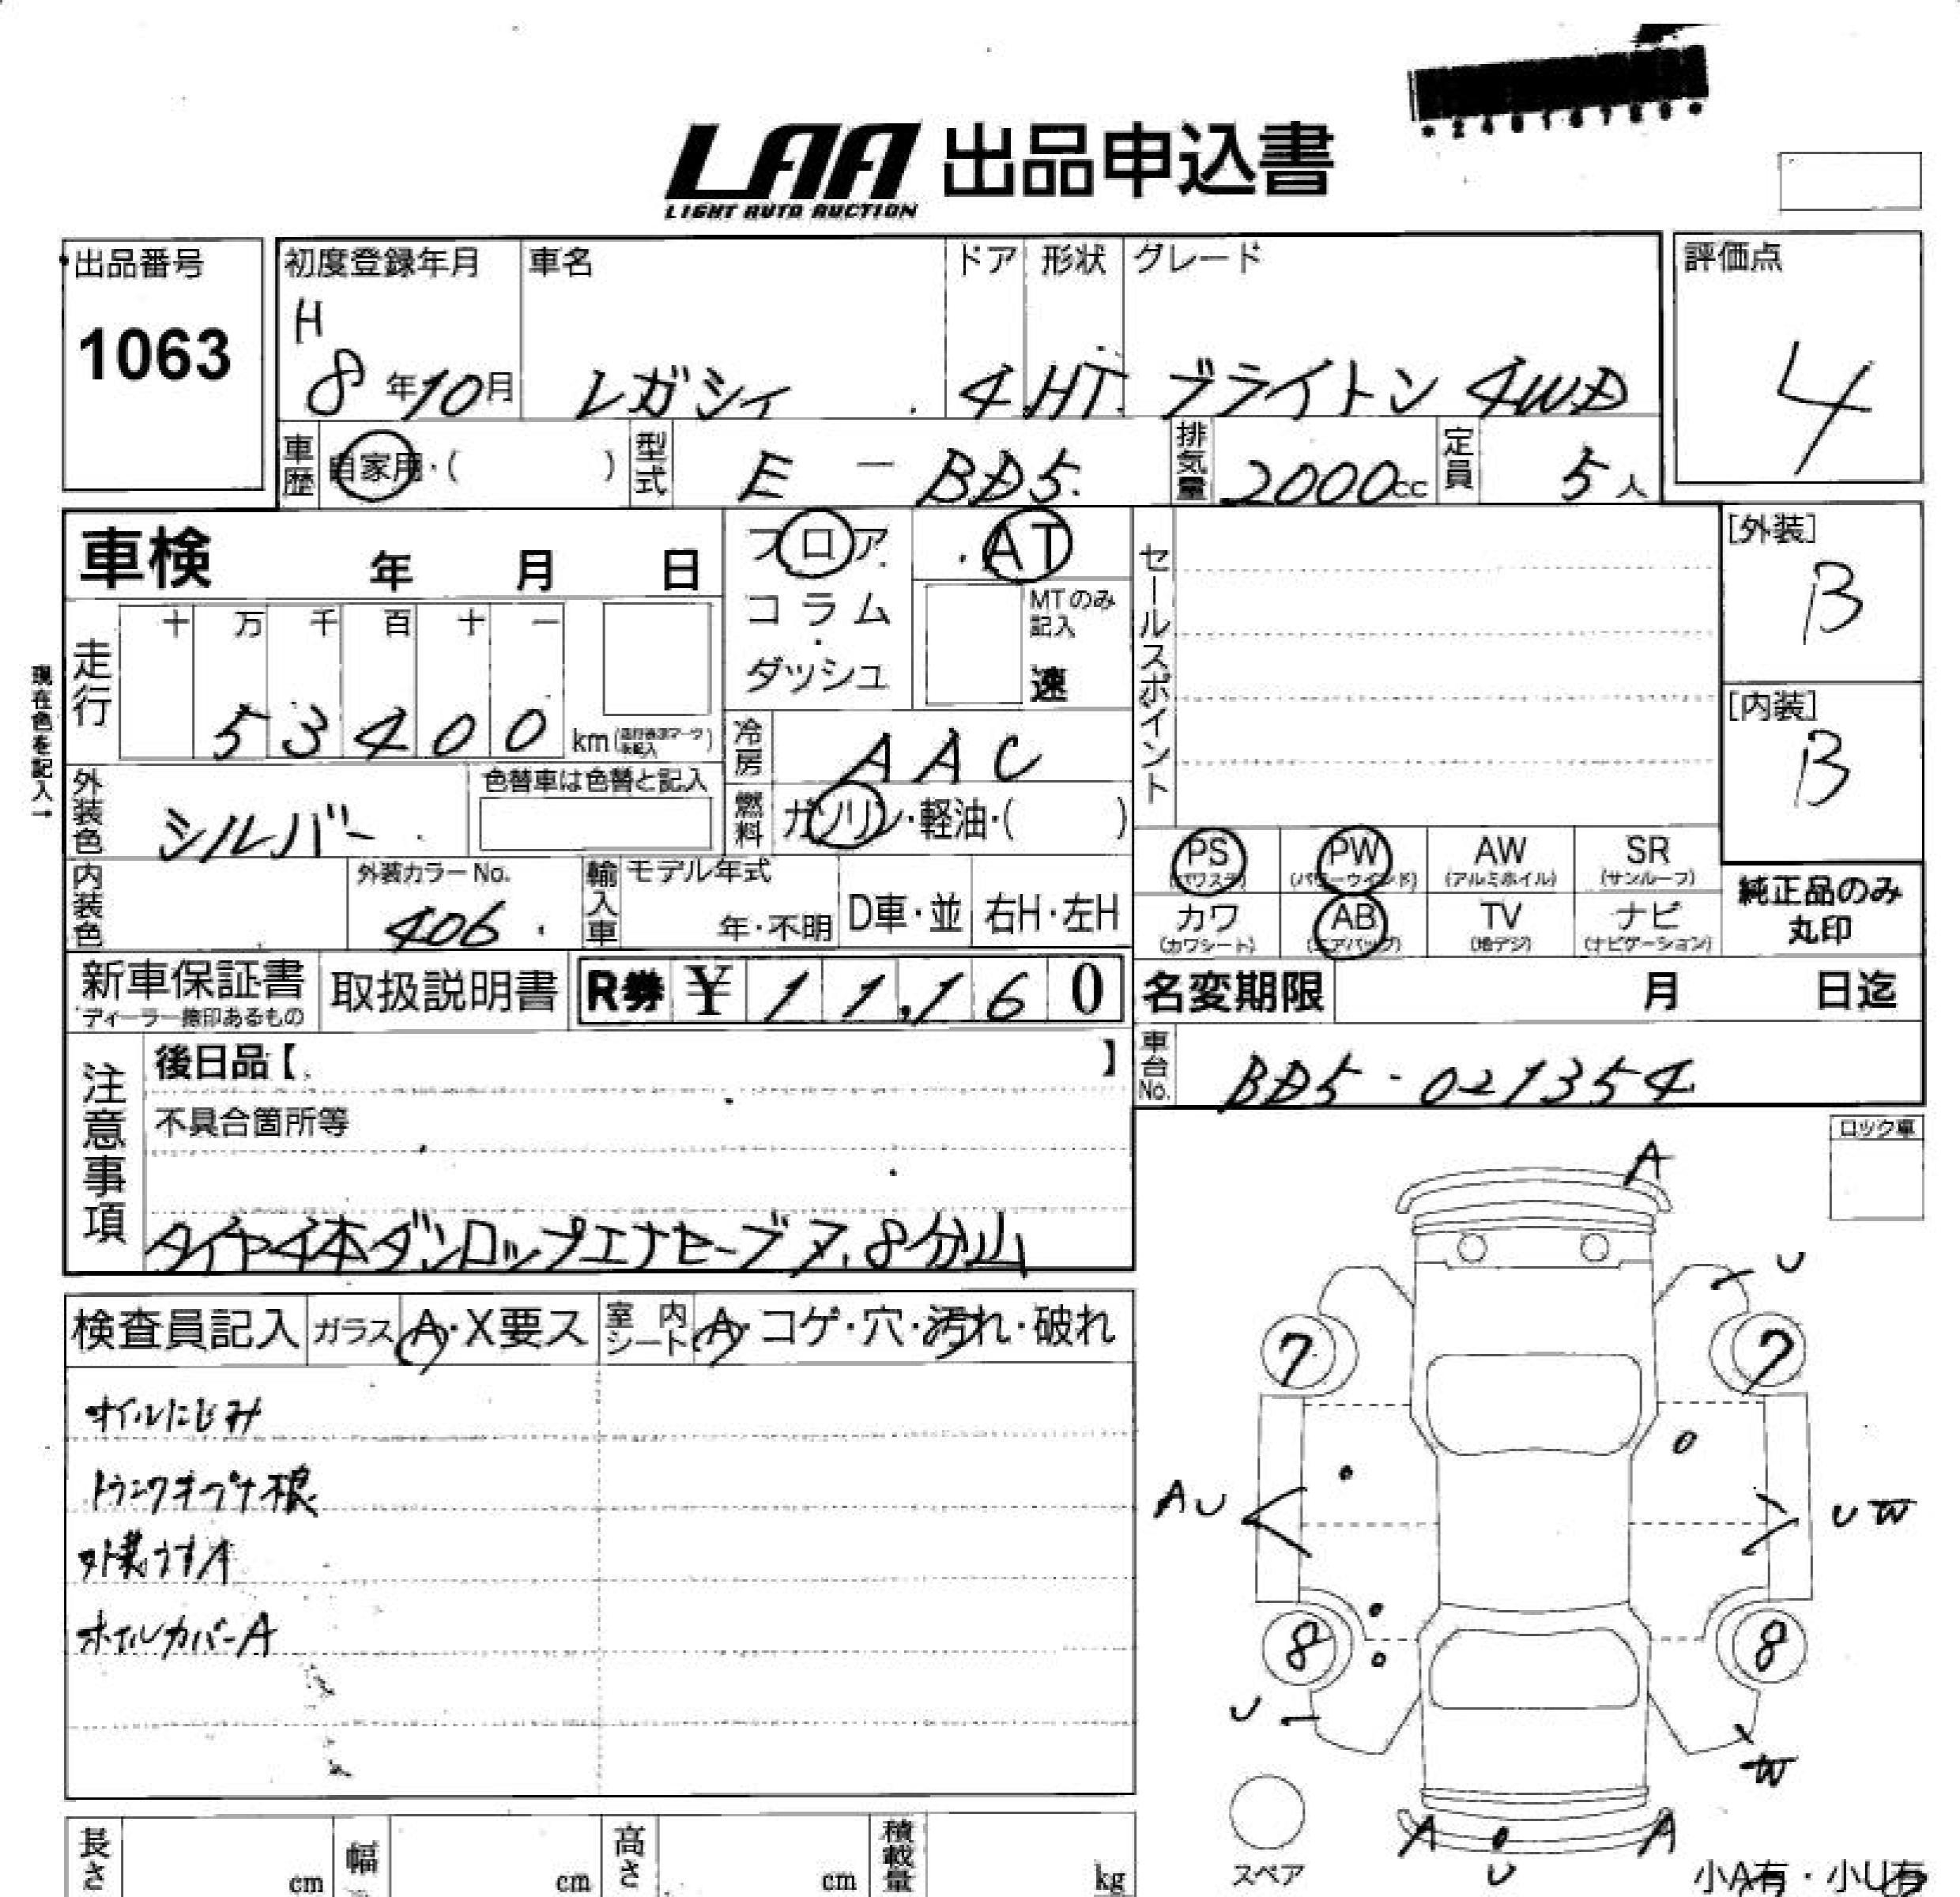 LAA 出品申込書
LIGHT AUTO AUCTION
出品番号
1063
初度登録年月 車名 ドア 形状 グレード
H
8年10月 レガシィ 4 HT ブライトン 4WD
評価点
4
車歴 自家用・( ) 型式 E - BD5 排気量 2000cc 定員 5人
車検 年 月 日
フロア
コラム
ダッシュ
AT
MTのみ
記入
速
セールスポイント
[外装]
B
[内装]
B
現在色を記入→
走行 十 万 千 百 十 一
53400 km
冷房 AAC
外装色 シルバー
色替車は色替と記入
燃料 ガソリン・軽油・( )
内装色
外装カラーNo.
406
輸入車 モデル年式
年・不明
D車・並 右H・左H
PS
(パワステ)
PW
(パワーウインド)
AW
(アルミホイル)
SR
(サンルーフ)
カワ
(カワシート)
AB
(エアバッグ)
TV
(地デジ)
ナビ
(ナビゲーション)
純正品のみ
丸印
新車保証書
ディーラー捺印あるもの
取扱説明書
R券 ¥ 11,160
名変期限 月 日迄
車台No. BD5-021354
注意事項
後日品【 】
不具合箇所等
タイヤ4本ダンロップエナセーブ7.8分山
ロック車
検査員記入 ガラス A・X要ス 室内シート A・コゲ・穴・汚れ・破れ
オイルにじみ
トランクオープナ根
外装うすA
ホイルカバーA
A
U
7 7
AU
UW
8 8
U
W
A U A
スペア
小A有・小U有
長さ cm 幅 cm 高さ cm 積載量 kg